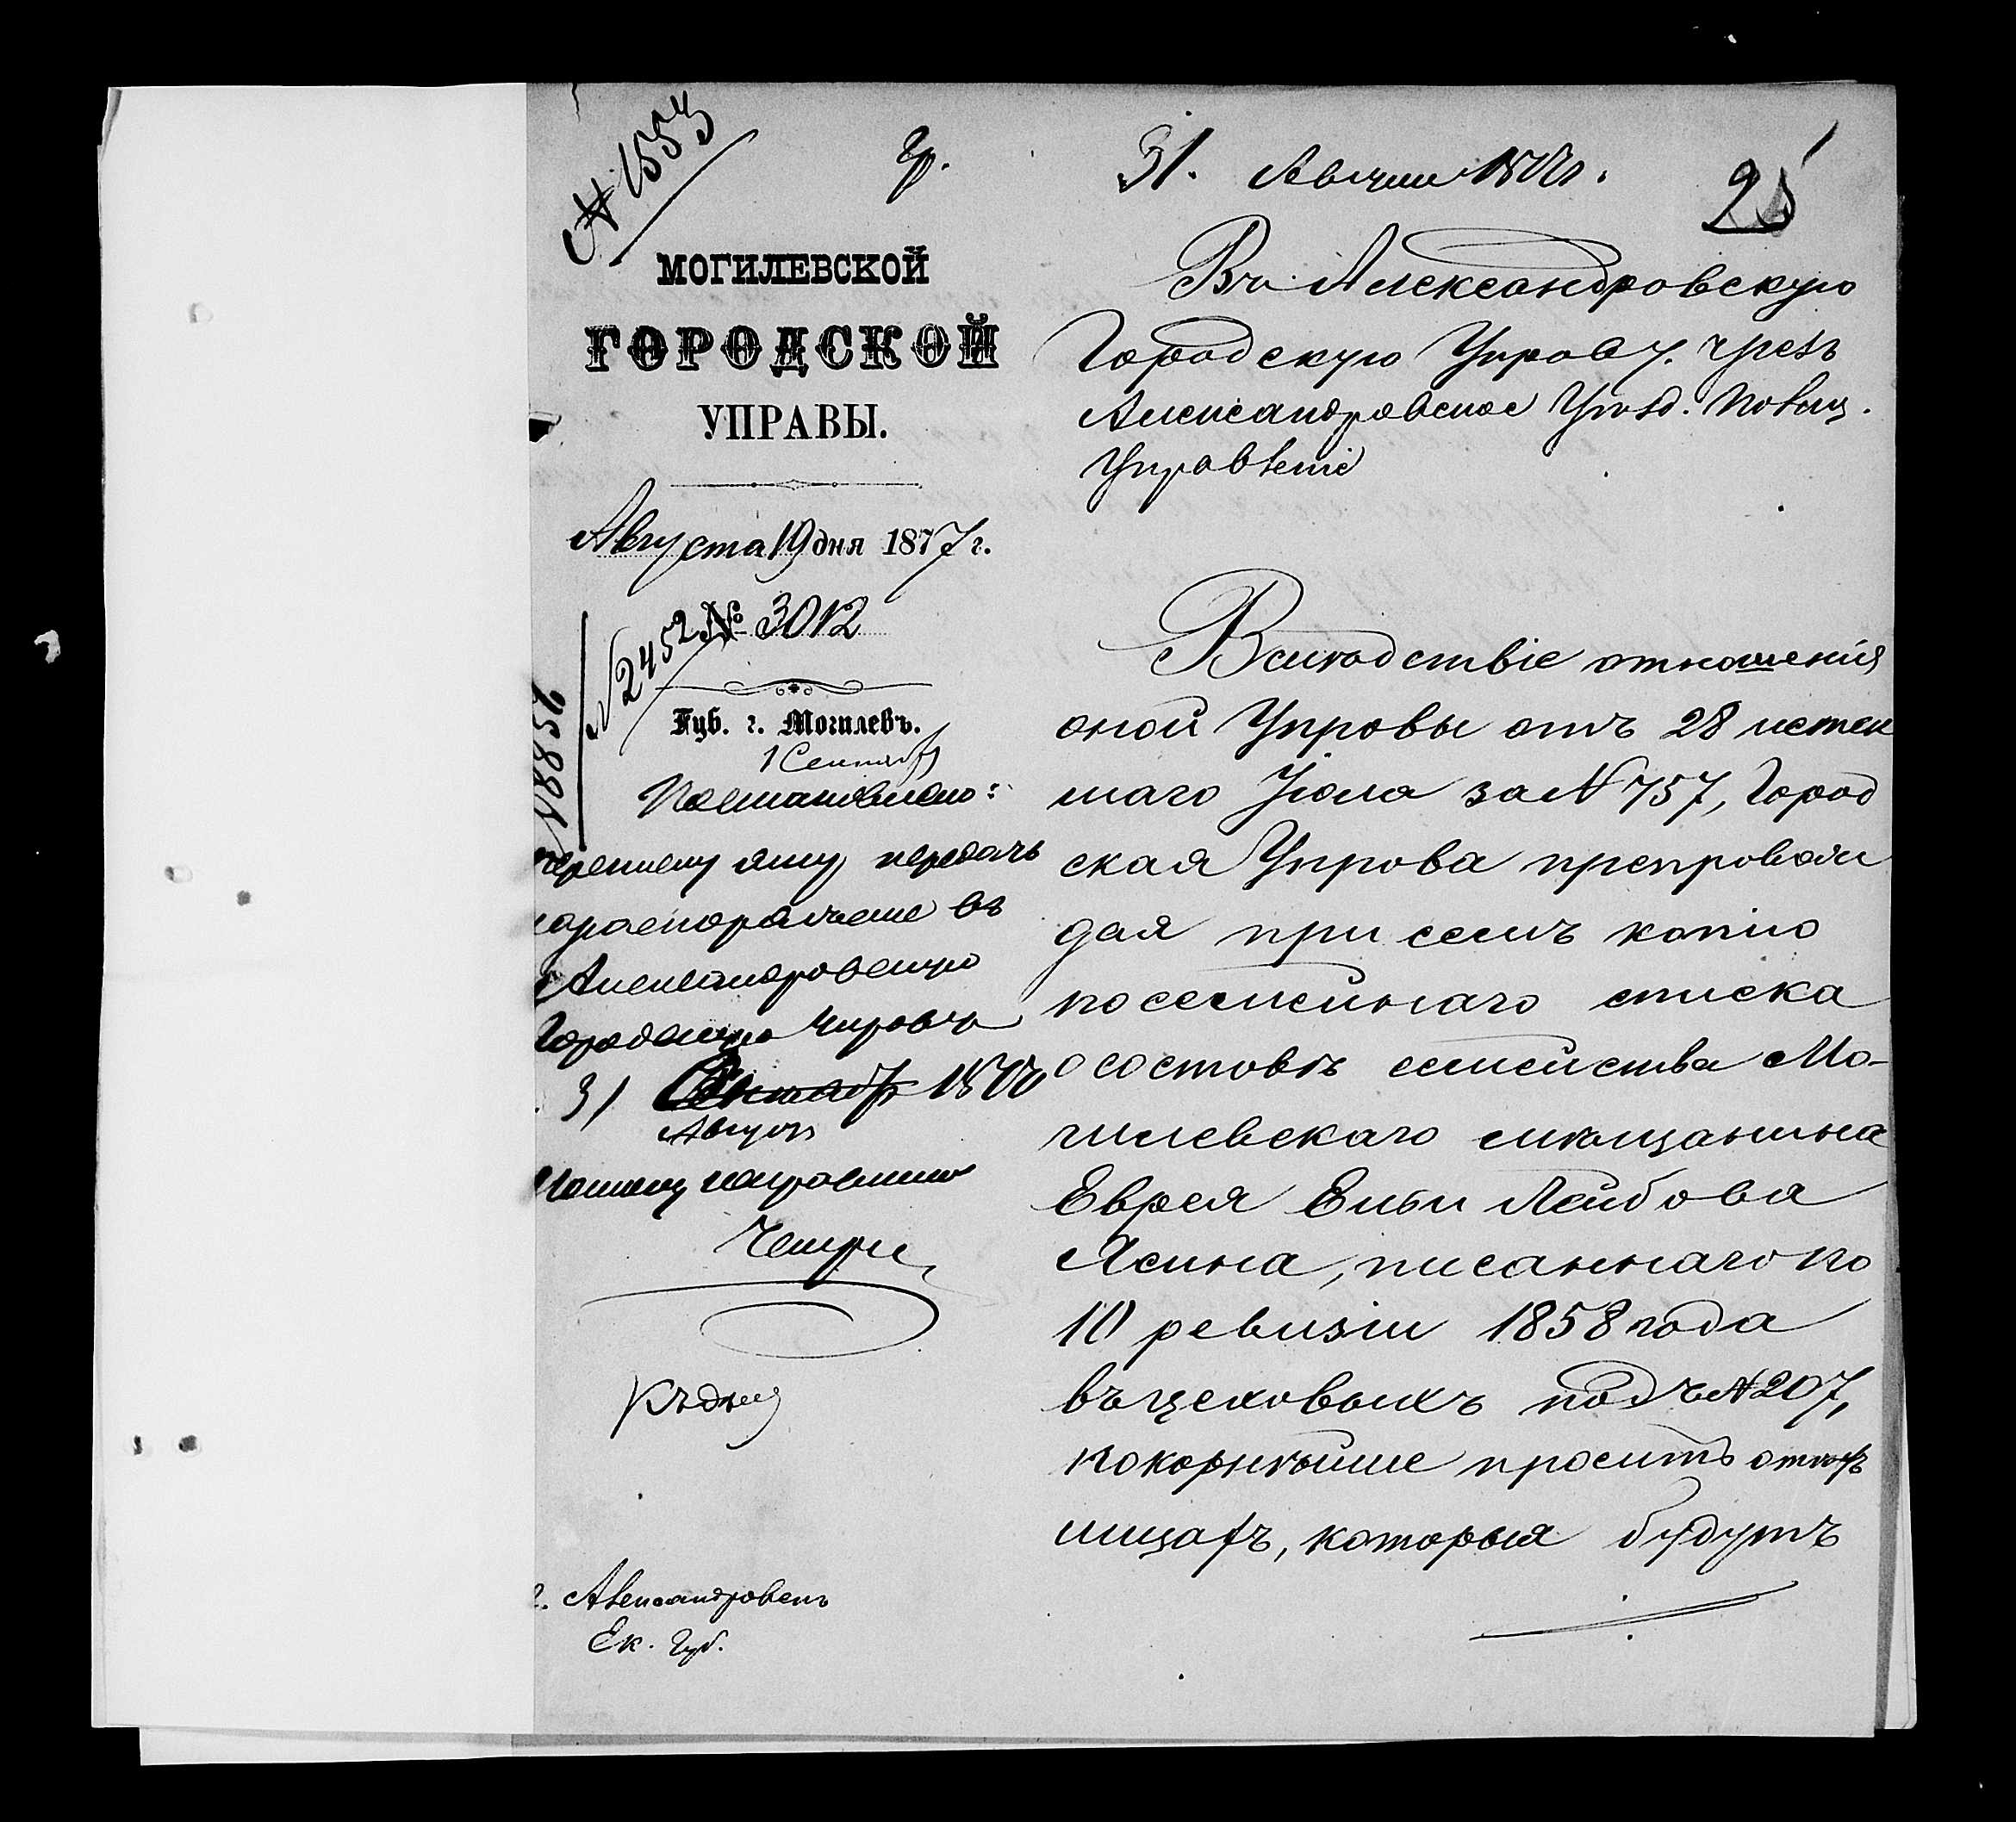 № 1553
31. Августа 1877 г.
25
МОГИЛЕВСКОЙ
ГОРОДСКОЙ
УПРАВЫ.
Августа 19 дня 1877 г.
№ 3012
№ 2452
Губ. г. Могилевъ.
1 Сентяб
Постановлено:
передать
въ
Александровскую
Городскую Управу
31 Сентяб 1877
Август
Къ дѣлу
г. Александровск
Ек. Губ.
Въ Александровскую
Городскую Управу. чрезъ
Александровское Уѣзд. Полиц.
Управленіе
Вслѣдствіе отношенія
оной Управы отъ 28 истек
шаго Іюля за № 757, Город
ская Управа препровож
дая при семъ копію
посемейнаго списка
о составѣ семейства Мо-
гилевскаго мѣщанина
Еврея Ельи Лейбова
Ясина, писаннаго по
10 ревизіи 1858 года
въ цеховыхъ подъ № 207,
покорнѣйше проситъ о
лицахъ, которыя будутъ